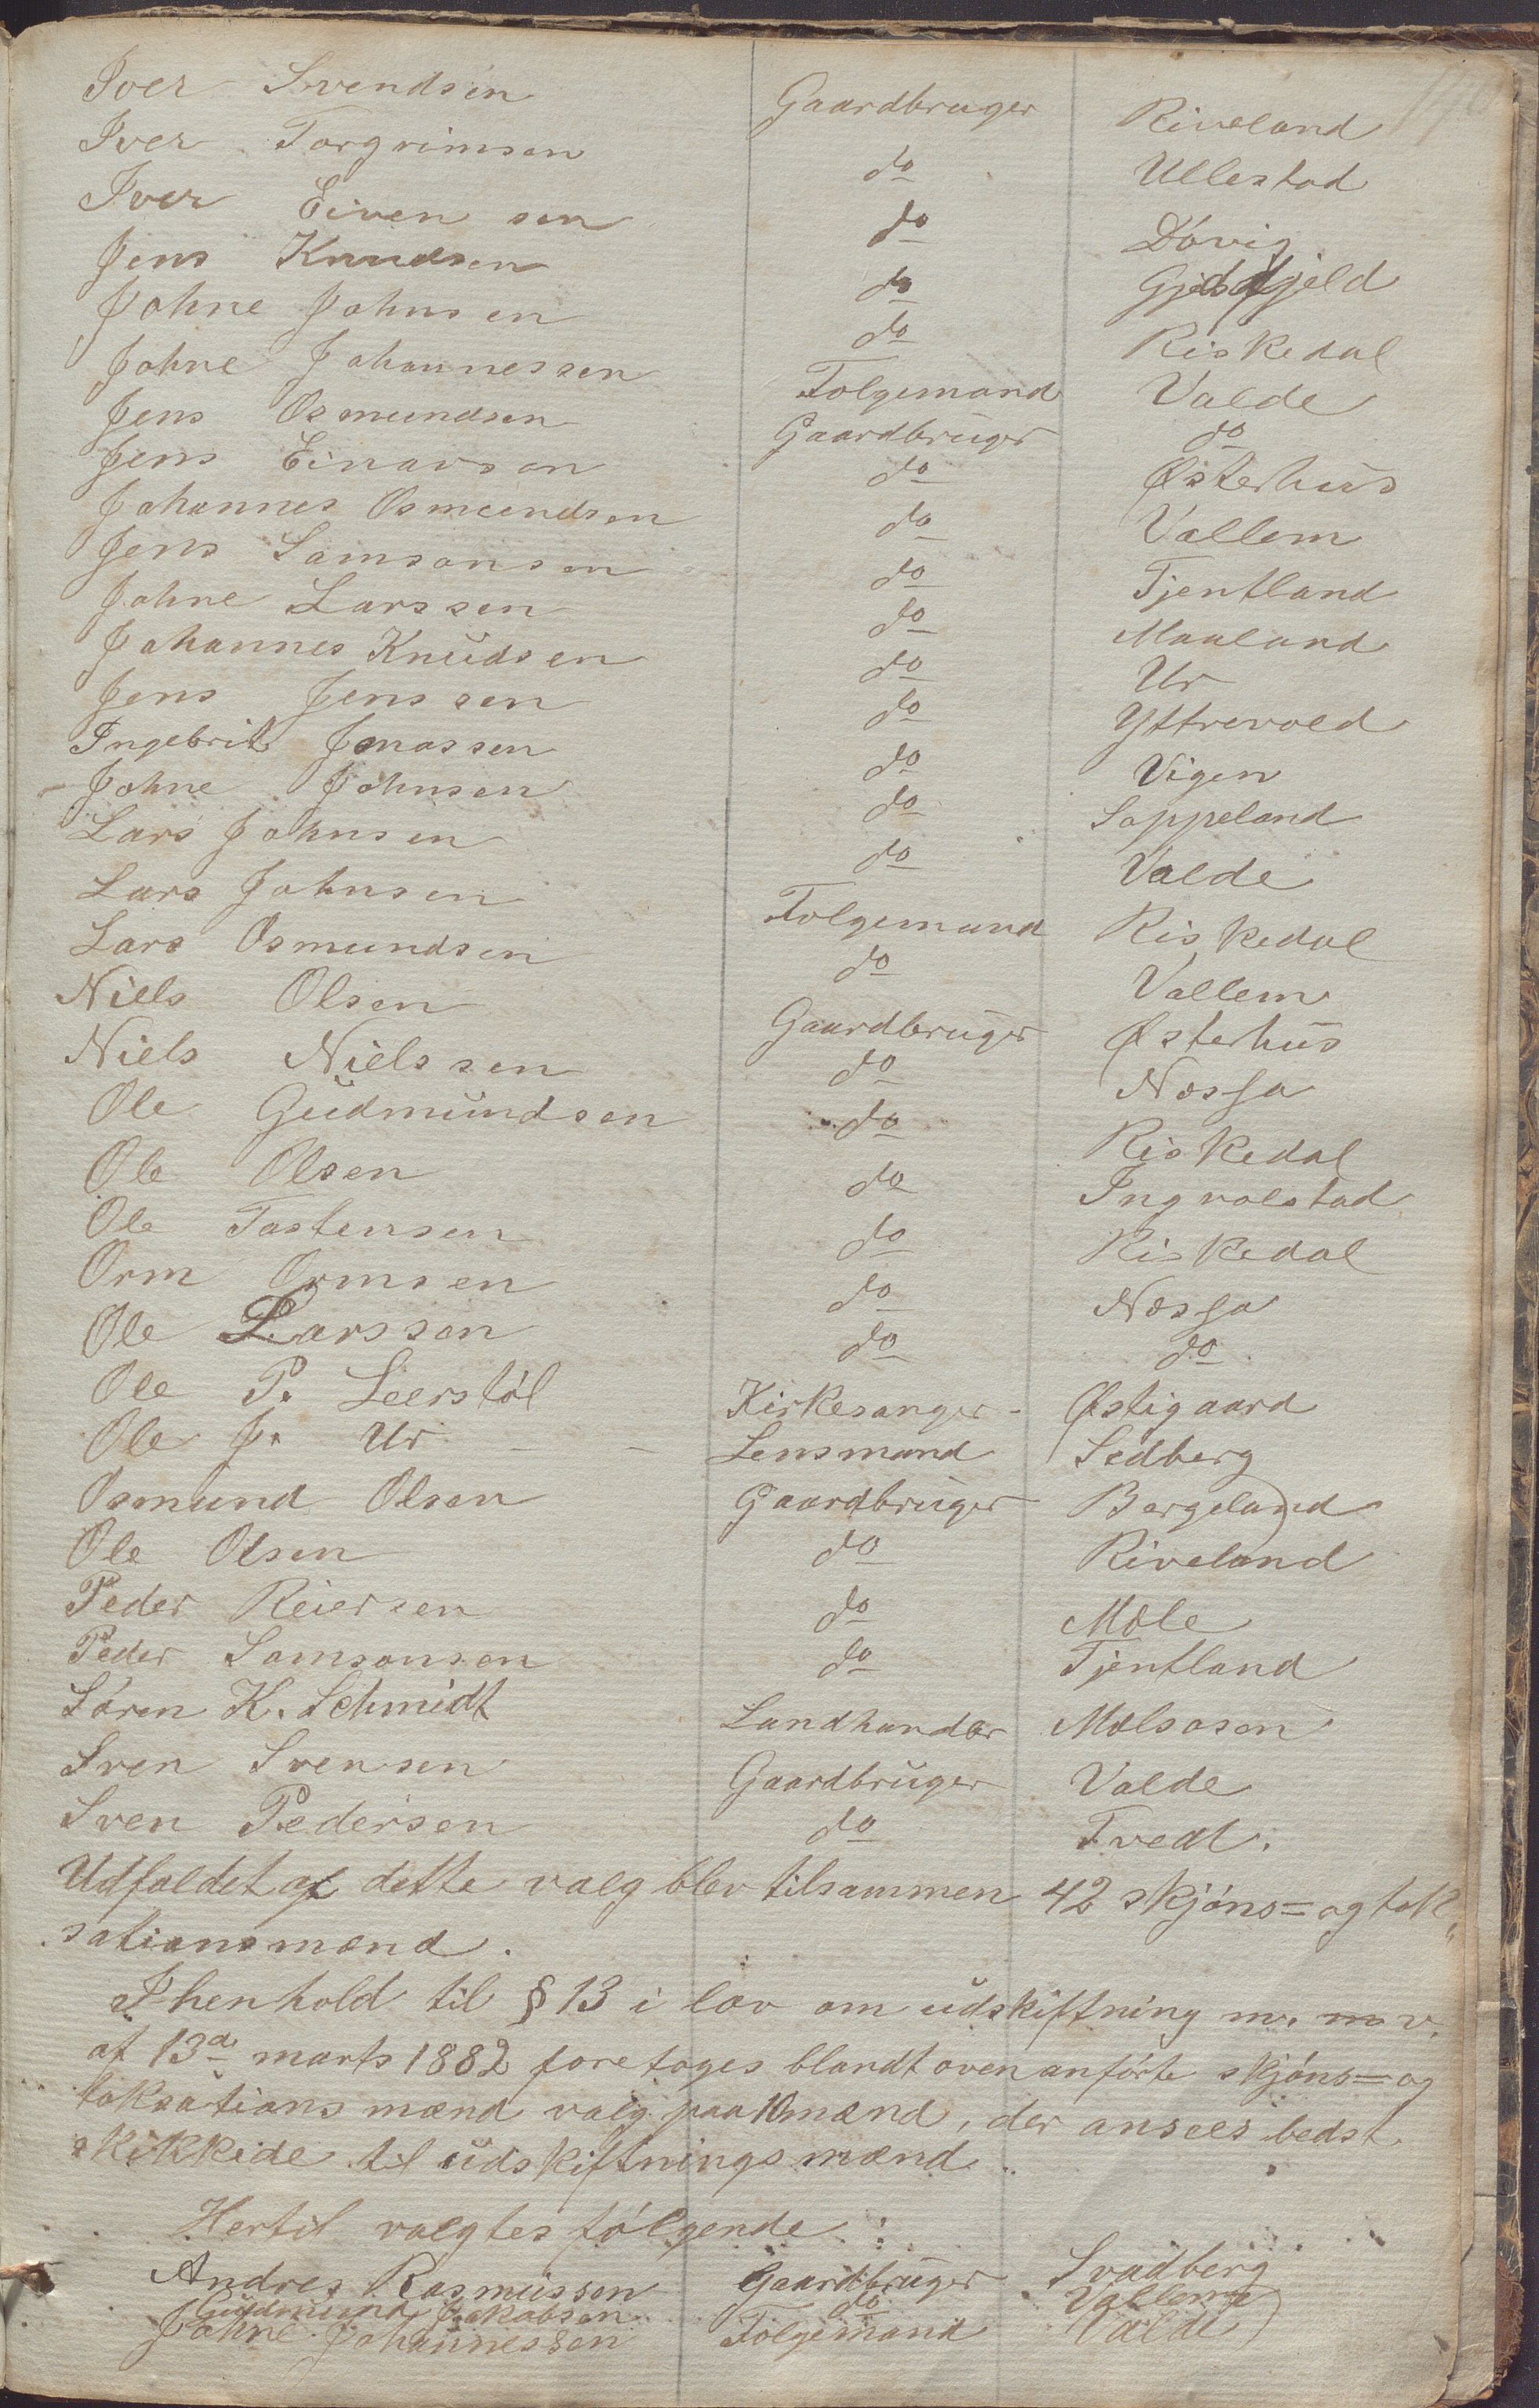 Iver Svendsen Gaardbruger Riveland
Iver Torgrimsen do Ullestad
Iver Eivensen do Døvig
Jens Knudsen do Gjedsfjeld
Johne Johnsen do Riskedal
Johne Johannessen Folgemand Valde
Jens Osmundsen Gaardbruger do
Jens Einarsen do Østerhus
Johannes Osmundsen do Vallem
Jens Samsonsen do Tjentland
Johne Larssen do Maaland
Johannes Knudsen do Ur
Jens Jenssen do Yttrevold
Ingebrit Jonassen do Vigen
Johne Johnsen do Soppeland
Lars Johnsen do Valde
Lars Johnsen Folgemand Riskedal
Lars Osmundsen do Vallem
Niels Olsen Gaardbruger Østerhus
Niels Nielssen do Nossa
Ole Gudmundsen do Riskedal
Ole Olsen do Ingvalstad
Ole Tostensen do Riskedal
Orm Ormsen do Nossa
Ole Larssen do do
Ole P. Leerstøl Kirkesanger Østigaard
Ole J. Ur Lensmand Sedberg
Osmund Olsen Gaardbruger Bergeland
Ole Olsen do Riveland
Peder Reiersen do Mæle
Peder Samsonsen do Tjentland
Søren K. Schmidt Landhandler Mælsosen
Sven Svensen Gaardbruger Valde
Sven Pedersen do Tvedt.
Udfaldet af dette valg blev tilsammen 42 skjøns= og tak„
sationsmænd.
I henhold til § 13 i lov om udskiftning m. m v.
af 13de marts 1882 foretages blandt ovenanførte skjøns= og
taksationsmænd valg paa 10 mænd, der ansees bedst
skikkede til udskiftningsmænd.
Hertil valgtes følgende:
Andres Rasmussen Gaardbruger Svadberg
Gudmund Jakobsen do Vallem
Johne Johannessen Folgemand Valde